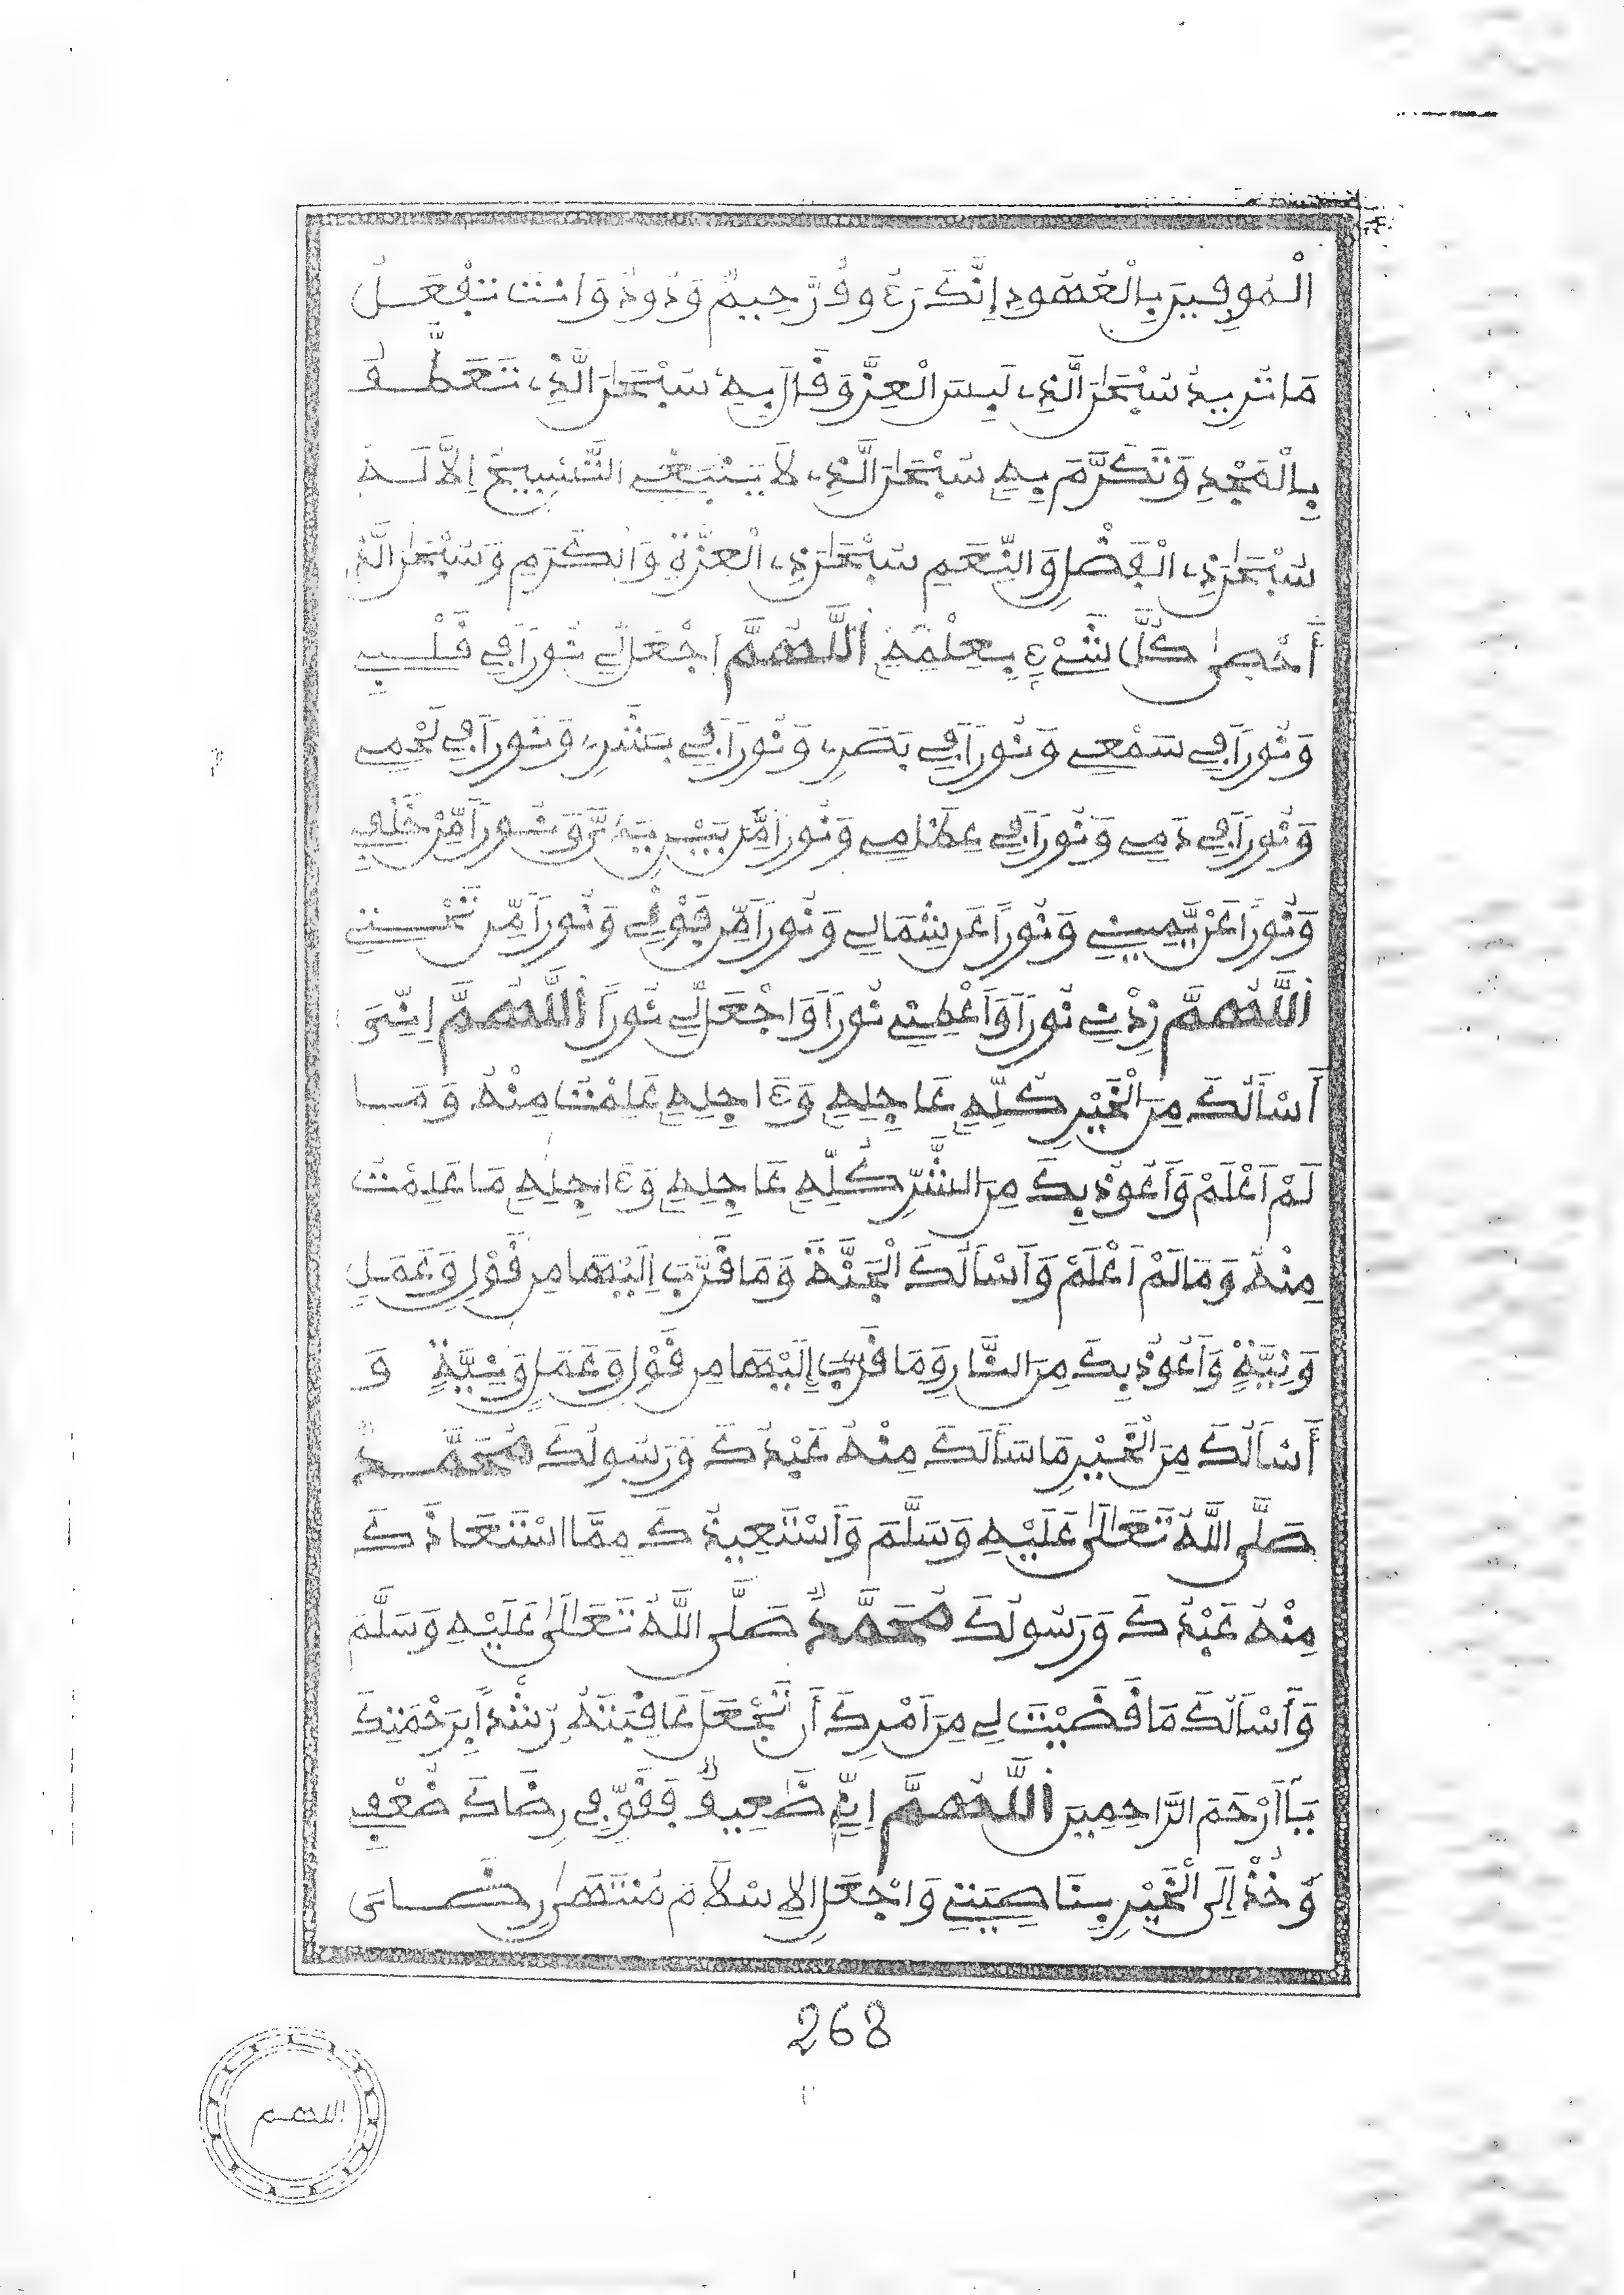 الْمُوفِينَ بِالْعُهُودِ إِنَّكَ رَءُوفٌ رَّحِيمٌ وَدُودٌ وَانتَ تَفْعَلُ
مَا تُرِيدُ سُبْحَٰنَ الَّذِي لَبِسَ الْعِزَّ وَقَالَ بِهِ سُبْحَٰنَ الَّذِي تَعَطَّفَ
بِالْمَجْدِ وَتَكَرَّمَ بِهِ سُبْحَٰنَ الَّذِي لَا يَنْبَغِي التَّسْبِيحُ إِلَّا لَهُ
سُبْحَٰنَ ذِي الْفَضْلِ وَالنِّعَمِ سُبْحَٰنَ ذِي الْعِزَّةِ وَالْكَرَمِ وَسُبْحَٰنَ الَّذِي
أَحْصَىٰ كُلَّ شَيْءٍ بِعِلْمِهِ اللَّهُمَّ اجْعَل لِّي نُوراً فِي قَلْبِي
وَنُوراً فِي سَمْعِي وَنُوراً فِي بَصَرِي وَنُوراً فِي بَشَرِي وَنُوراً فِي لَحْمِي
وَنُوراً فِي دَمِي وَنُوراً فِي عِظَٰمِي وَنُوراً مِّنْ بَيْنِ يَدَيَّ وَنُوراً مِّنْ خَلْفِي
وَنُوراً عَنْ يَّمِينِي وَنُوراً عَن شِمَالِي وَنُوراً مِّن فَوْقِي وَنُوراً مِّن تَحْتِي
اللَّهُمَّ زِدْنِي نُوراً وَأَعْطِنِي نُوراً وَاجْعَل لِّي نُوراً اللَّهُمَّ إِنِّيَ
أَسْأَلُكَ مِنَ الْخَيْرِ كُلِّهِ عَاجِلِهِ وَءَاجِلِهِ عَلِمْتُ مِنْهُ وَمَا
لَمْ أَعْلَمْ وَأَعُوذُ بِكَ مِنَ الشَّرِّ كُلِّهِ عَاجِلِهِ وَءَاجِلِهِ مَا عَلِمْتُ
مِنْهُ وَمَا لَمْ أَعْلَمْ وَأَسْأَلُكَ الْجَنَّةَ وَمَا قَرَّبَ إِلَيْهَا مِن قَوْلٍ وَعَمَلٍ
وَنِيَّةٍ وَأَعُوذُ بِكَ مِنَ النَّارِ وَمَا قَرَّبَ إِلَيْهَا مِن قَوْلٍ وَعَمَلٍ وَنِيَّةٍ وَ
أَسْأَلُكَ مِنَ الْخَيْرِ مَا سَأَلَكَ مِنْهُ عَبْدُكَ وَرَسُولُكَ مُحَمَّدٌ
صَلَّى اللَّهُ تَعَالَىٰ عَلَيْهِ وَسَلَّمَ وَأَسْتَعِيذُكَ مِمَّا اسْتَعَاذَكَ
مِنْهُ عَبْدُكَ وَرَسُولُكَ مُحَمَّدٌ صَلَّى اللَّهُ تَعَالَىٰ عَلَيْهِ وَسَلَّمَ
وَأَسْأَلُكَ مَا قَضَيْتَ لِي مِنَ أَمْرِكَ أَن تَجْعَلَ عَاقِبَتَهُ رُشْداً بِرَحْمَتِكَ
يَا أَرْحَمَ الرَّاحِمِينَ اللَّهُمَّ إِنِّي ضَعِيفٌ فَقَوِّ فِي رِضَاكَ ضُعْفِي
وَخُذْ إِلَى الْخَيْرِ بِنَاصِيَتِي وَاجْعَلِ الإِسْلَامَ مُنْتَهَىٰ رِضَاىَ
268
اللهم